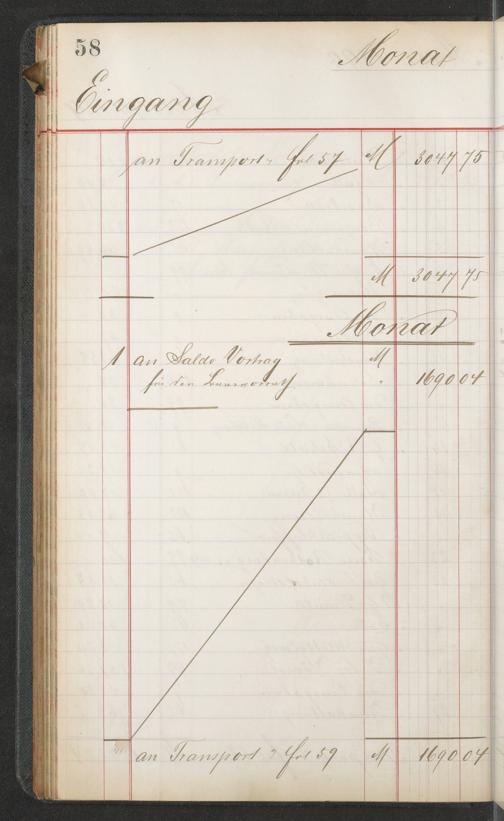 58
Monat
Eingang
an Transport v fol 57 M 3047 75
M 3047 75
Monat
1 an Saldo Vortrag M
für den 1690 04
an Transport fol 59 M 1690 04